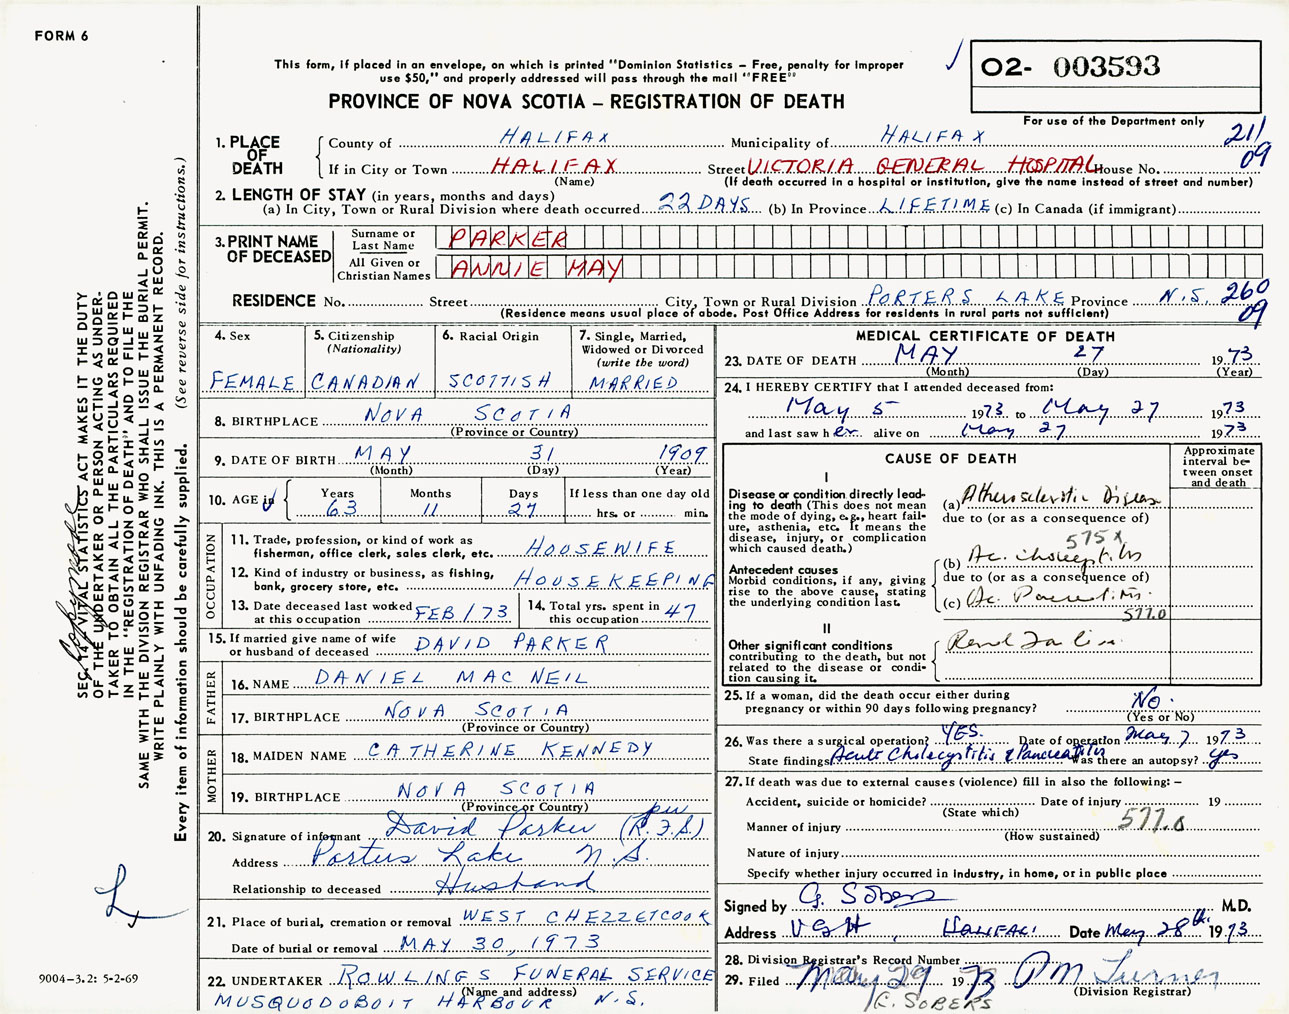 FORM 6
This form, if placed in an envelope, on which is printed "Dominion Statistics – Free, penalty for improper
use $50," and properly addressed will pass through the mail "FREE"
PROVINCE OF NOVA SCOTIA – REGISTRATION OF DEATH
O2- 003593
For use of the Department only
21/
09
1. PLACE OF DEATH
County of HALIFAX Municipality of HALIFAX
If in City or Town HALIFAX Street VICTORIA GENERAL HOSPITAL House No.
(Name) (If death occurred in a hospital or institution, give the name instead of street and number)
2. LENGTH OF STAY (in years, months and days)
(a) In City, Town or Rural Division where death occurred 22 DAYS (b) In Province LIFETIME (c) In Canada (if immigrant)
3. PRINT NAME OF DECEASED
Surname or Last Name PARKER
All Given or Christian Names ANNIE MAY
RESIDENCE No. Street City, Town or Rural Division PORTERS LAKE Province N.S. 260
09
(Residence means usual place of abode. Post Office Address for residents in rural parts not sufficient)
4. Sex
FEMALE
5. Citizenship
(Nationality)
CANADIAN
6. Racial Origin
SCOTTISH
7. Single, Married,
Widowed or Divorced
(write the word)
MARRIED
8. BIRTHPLACE NOVA SCOTIA
(Province or Country)
9. DATE OF BIRTH MAY 31 1909
(Month) (Day) (Year)
10. AGE
Years Months Days If less than one day old
63 11 27 hrs. or min.
OCCUPATION
11. Trade, profession, or kind of work as
fisherman, office clerk, sales clerk, etc. HOUSEWIFE
12. Kind of industry or business, as fishing,
bank, grocery store, etc. HOUSEKEEPING
13. Date deceased last worked
at this occupation FEB / 73
14. Total yrs. spent in
this occupation 47
15. If married give name of wife
or husband of deceased DAVID PARKER
FATHER
16. NAME DANIEL MAC NEIL
17. BIRTHPLACE NOVA SCOTIA
(Province or Country)
MOTHER
18. MAIDEN NAME CATHERINE KENNEDY
19. BIRTHPLACE NOVA SCOTIA
(Province or Country)
20. Signature of informant David Parker per (R.F.S.)
Address Porters Lake N.S.
Relationship to deceased Husband
21. Place of burial, cremation or removal WEST CHEZZETCOOK
Date of burial or removal MAY 30, 1973
22. UNDERTAKER ROWLINGS FUNERAL SERVICE
(Name and address)
MUSQUODOBOIT HARBOUR N.S.
MEDICAL CERTIFICATE OF DEATH
23. DATE OF DEATH MAY 27 1973
(Month) (Day) (Year)
24. I HEREBY CERTIFY that I attended deceased from:
May 5 1973 to May 27 1973
and last saw her alive on May 27 1973
CAUSE OF DEATH
Approximate
interval be-
tween onset
and death
I
Disease or condition directly lead-
ing to death (This does not mean
the mode of dying, e.g., heart fail-
ure, asthenia, etc. It means the
disease, injury, or complication
which caused death.)
(a) Atherosclerotic Disease
due to (or as a consequence of)
575 X
Antecedent causes
Morbid conditions, if any, giving
rise to the above cause, stating
the underlying condition last.
(b) Ac. Cholecystitis
due to (or as a consequence of)
(c) Ac. Pancreatitis.
577.0
II
Other significant conditions
contributing to the death, but not
related to the disease or condi-
tion causing it.
Renal Failure
25. If a woman, did the death occur either during
pregnancy or within 90 days following pregnancy? No.
(Yes or No)
26. Was there a surgical operation? YES. Date of operation May 7 1973
State findings Acute Cholecystitis & Pancreatitis Was there an autopsy? yes
27. If death was due to external causes (violence) fill in also the following: –
Accident, suicide or homicide? Date of injury 19
(State which)
Manner of injury 577.0
(How sustained)
Nature of injury
Specify whether injury occurred in industry, in home, or in public place
Signed by G. Sobers M.D.
Address V G H, HALIFAX Date May 28th 1973
28. Division Registrar's Record Number
29. Filed May 29 1973 P M Turner
(Division Registrar)
SOBERS
SEC. 14, VITAL STATISTICS ACT MAKES IT THE DUTY
OF THE UNDERTAKER OR PERSON ACTING AS UNDER-
TAKER TO OBTAIN ALL THE PARTICULARS REQUIRED
IN THE "REGISTRATION OF DEATH" AND TO FILE THE
SAME WITH THE DIVISION REGISTRAR WHO SHALL ISSUE THE BURIAL PERMIT.
WRITE PLAINLY WITH UNFADING INK. THIS IS A PERMANENT RECORD.
Every item of information should be carefully supplied. (See reverse side for instructions.)
9004–3.2: 5-2-69